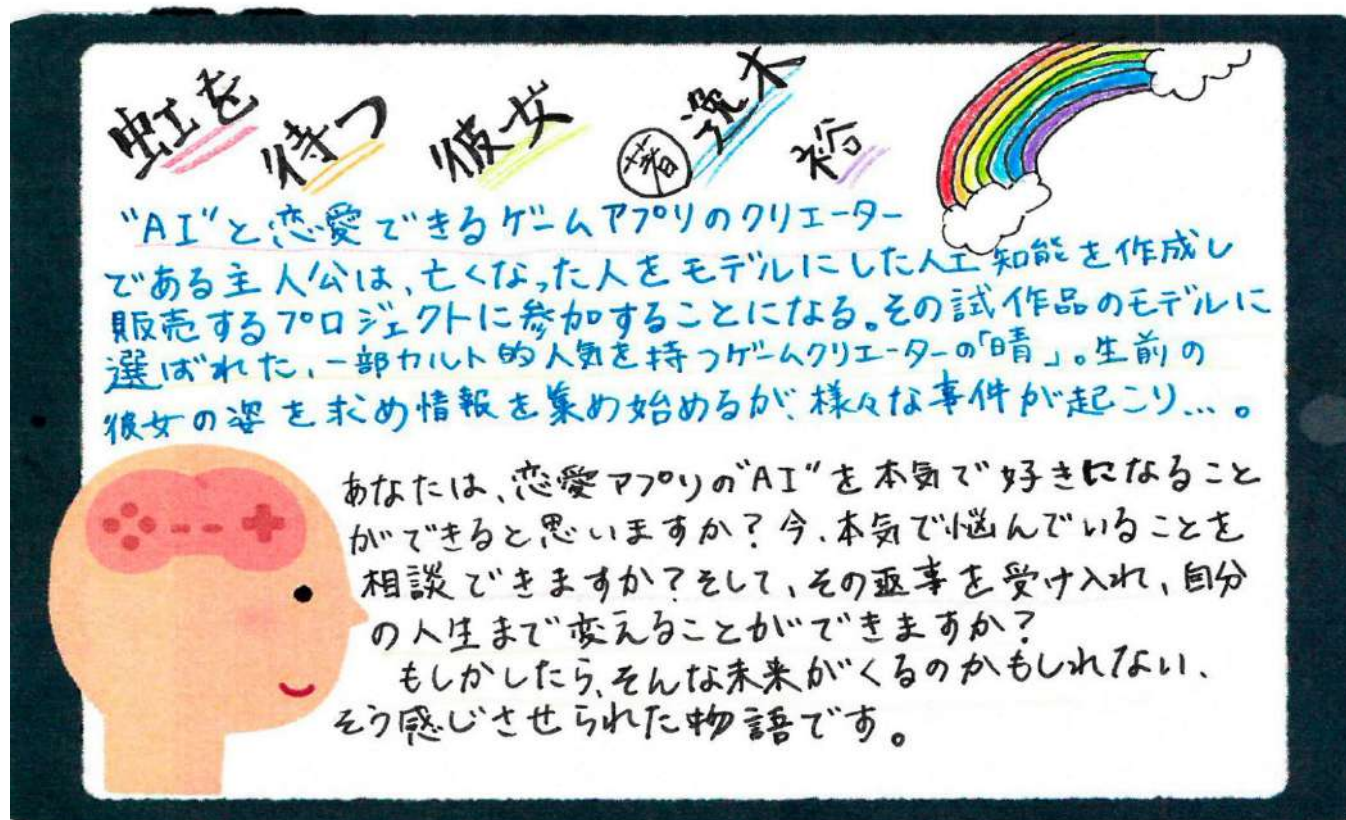 虹を待つ彼女 著 逸木裕
"AI"と恋愛できるゲームアプリのクリエーター
である主人公は、亡くなった人をモデルにした人工知能を作成し
販売するプロジェクトに参加することになる。その試作品のモデルに
選ばれた、一部カルト的人気を持つゲームクリエーターの「晴」。生前の
彼女の姿を求め情報を集め始めるが、様々な事件が起こり…。
あなたは、恋愛アプリの"AI"を本気で好きになること
ができると思いますか?今、本気で悩んでいることを
相談できますか?そして、その返事を受け入れ、自分
の人生まで変えることができますか?
もしかしたら、そんな未来がくるのかもしれない、
そう感じさせられた物語です。